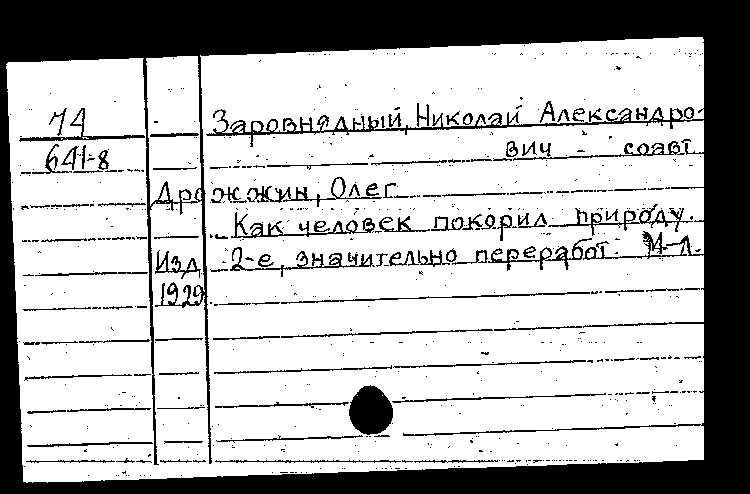 74 Заровнядный, Николай Александро-
641-8 вич - соавт
Дрожжин, Олег
Как человек покорил природу.
Изд. 2-е, значительно переработ. М-Л.
1929